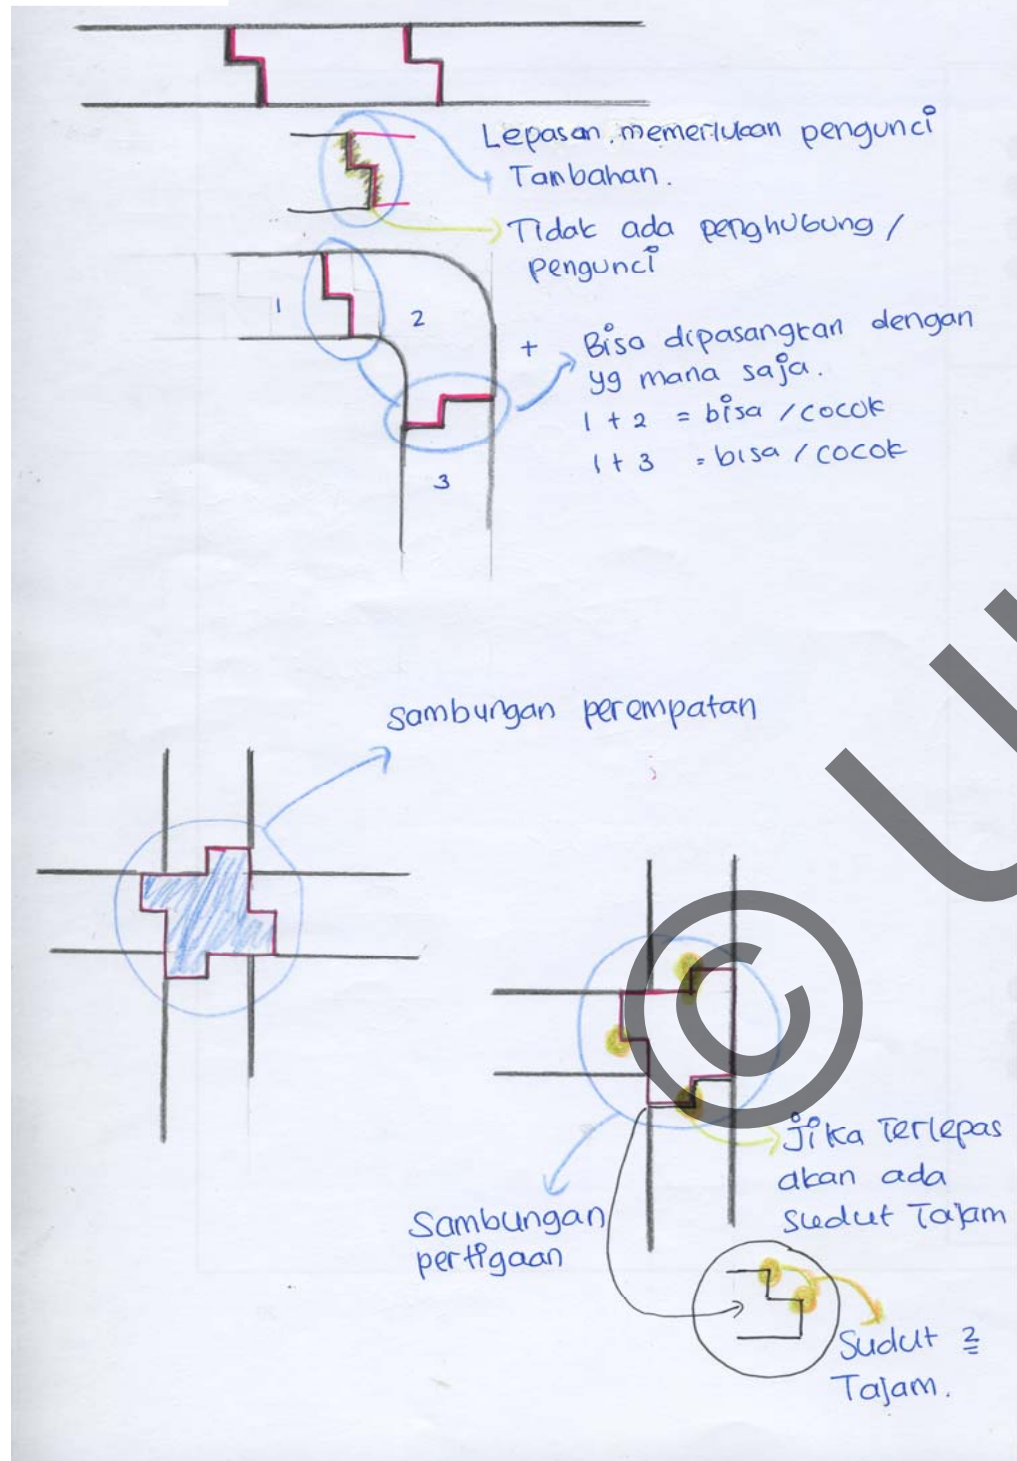 Lepasan memerlukan pengunci
Tambahan.
Tidak ada penghubung /
pengunci
1
2
3
+ Bisa dipasangkan dengan
yg mana saja.
1 + 2 = bisa / cocok
1 + 3 = bisa / cocok
Sambungan perempatan
Jika Terlepas
akan ada
sudut Tajam
Sambungan
pertigaan
Sudut 2
Tajam.
© U